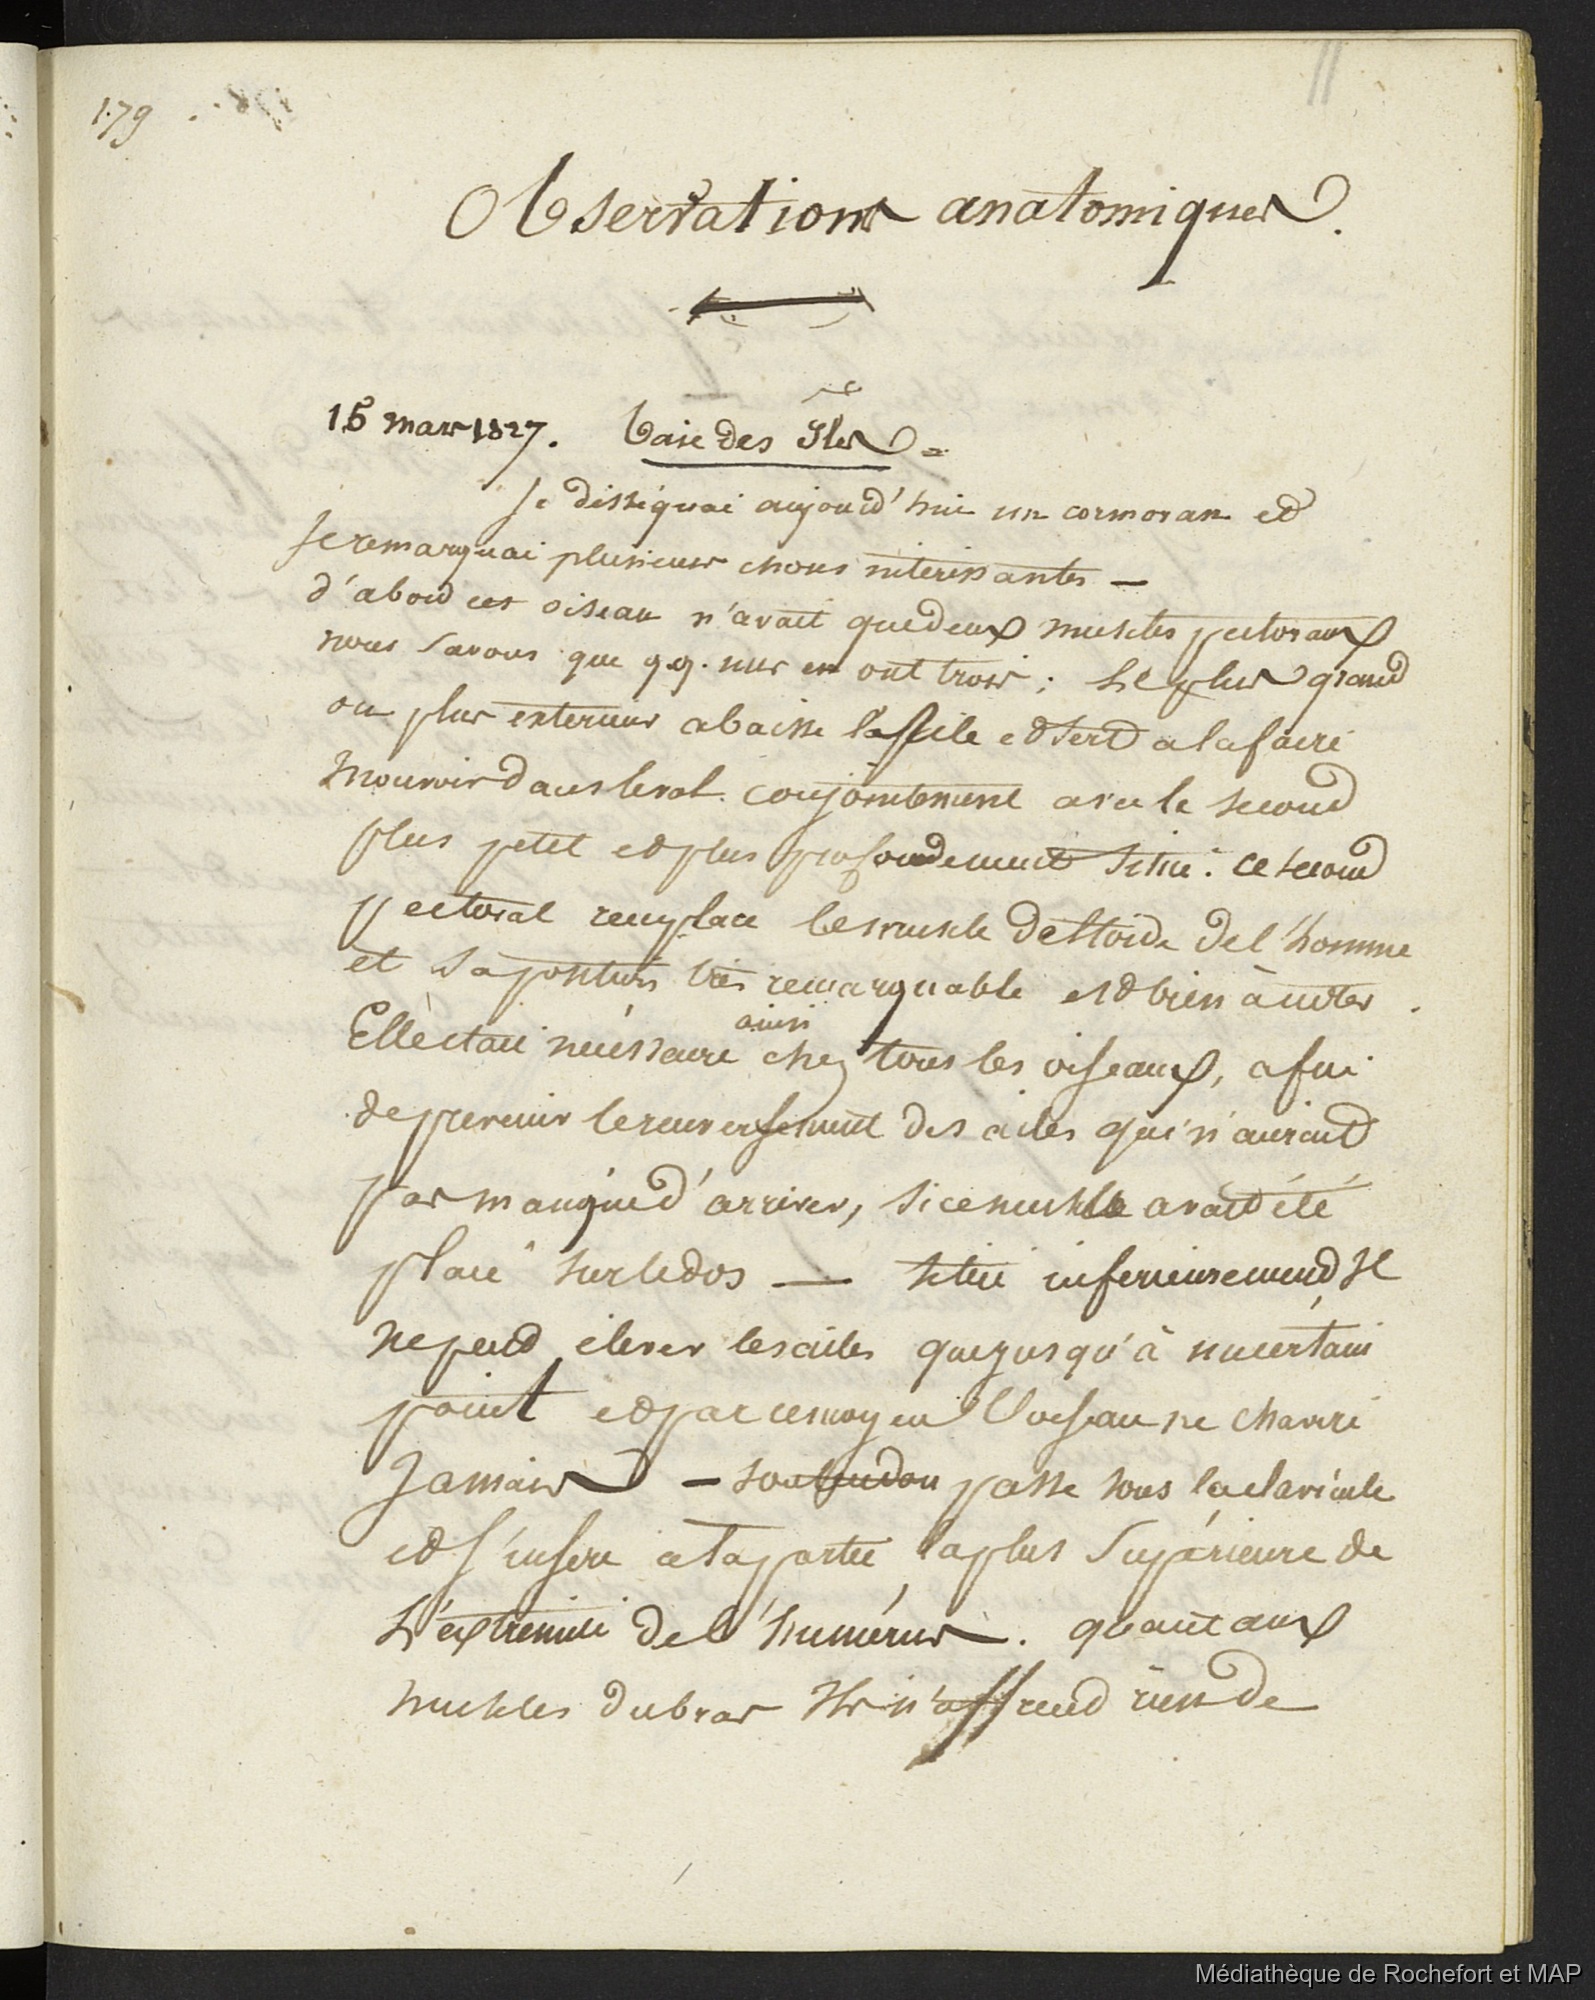 179
Observations anatomiques.
15 mars 1827. baie des Iles =
Je disséquai aujourd'hui un cormoran et
Je remarquai plusieurs choses intéressantes —
d'abord cet oiseau n'avait que deux muscles pectoraux
nous savons que q.q. uns en ont trois ; Le plus grand
ou plus exterieur abaisse l'aile et sert a la faire
Mouvoir dans le vol. conjointement avec le second
plus petit et plus profondement situé. ce second
pectoral remplace le muscle deltoïde de l'homme
et sa position très remarquable est bien à noter.
Elle était nécéssaire ainsi chez tous les oiseaux, afin
de prevenir le renversement des ailes qui n'auroit
pas manqué d'arriver, si ce muscle avait été
placé sur le dos — situé inferieurement Il
ne peut élever les ailes que jusqu'à un certain
point et par ce moyen l'oiseau ne chavire
Jamais — son tendon passe sous la clavicule
et s'insere a la partie la plus Supérieure de
L'extremité de l'humérus. quant aux
muscles du bras Ils n'offrent rien de
Médiathèque de Rochefort et MAP